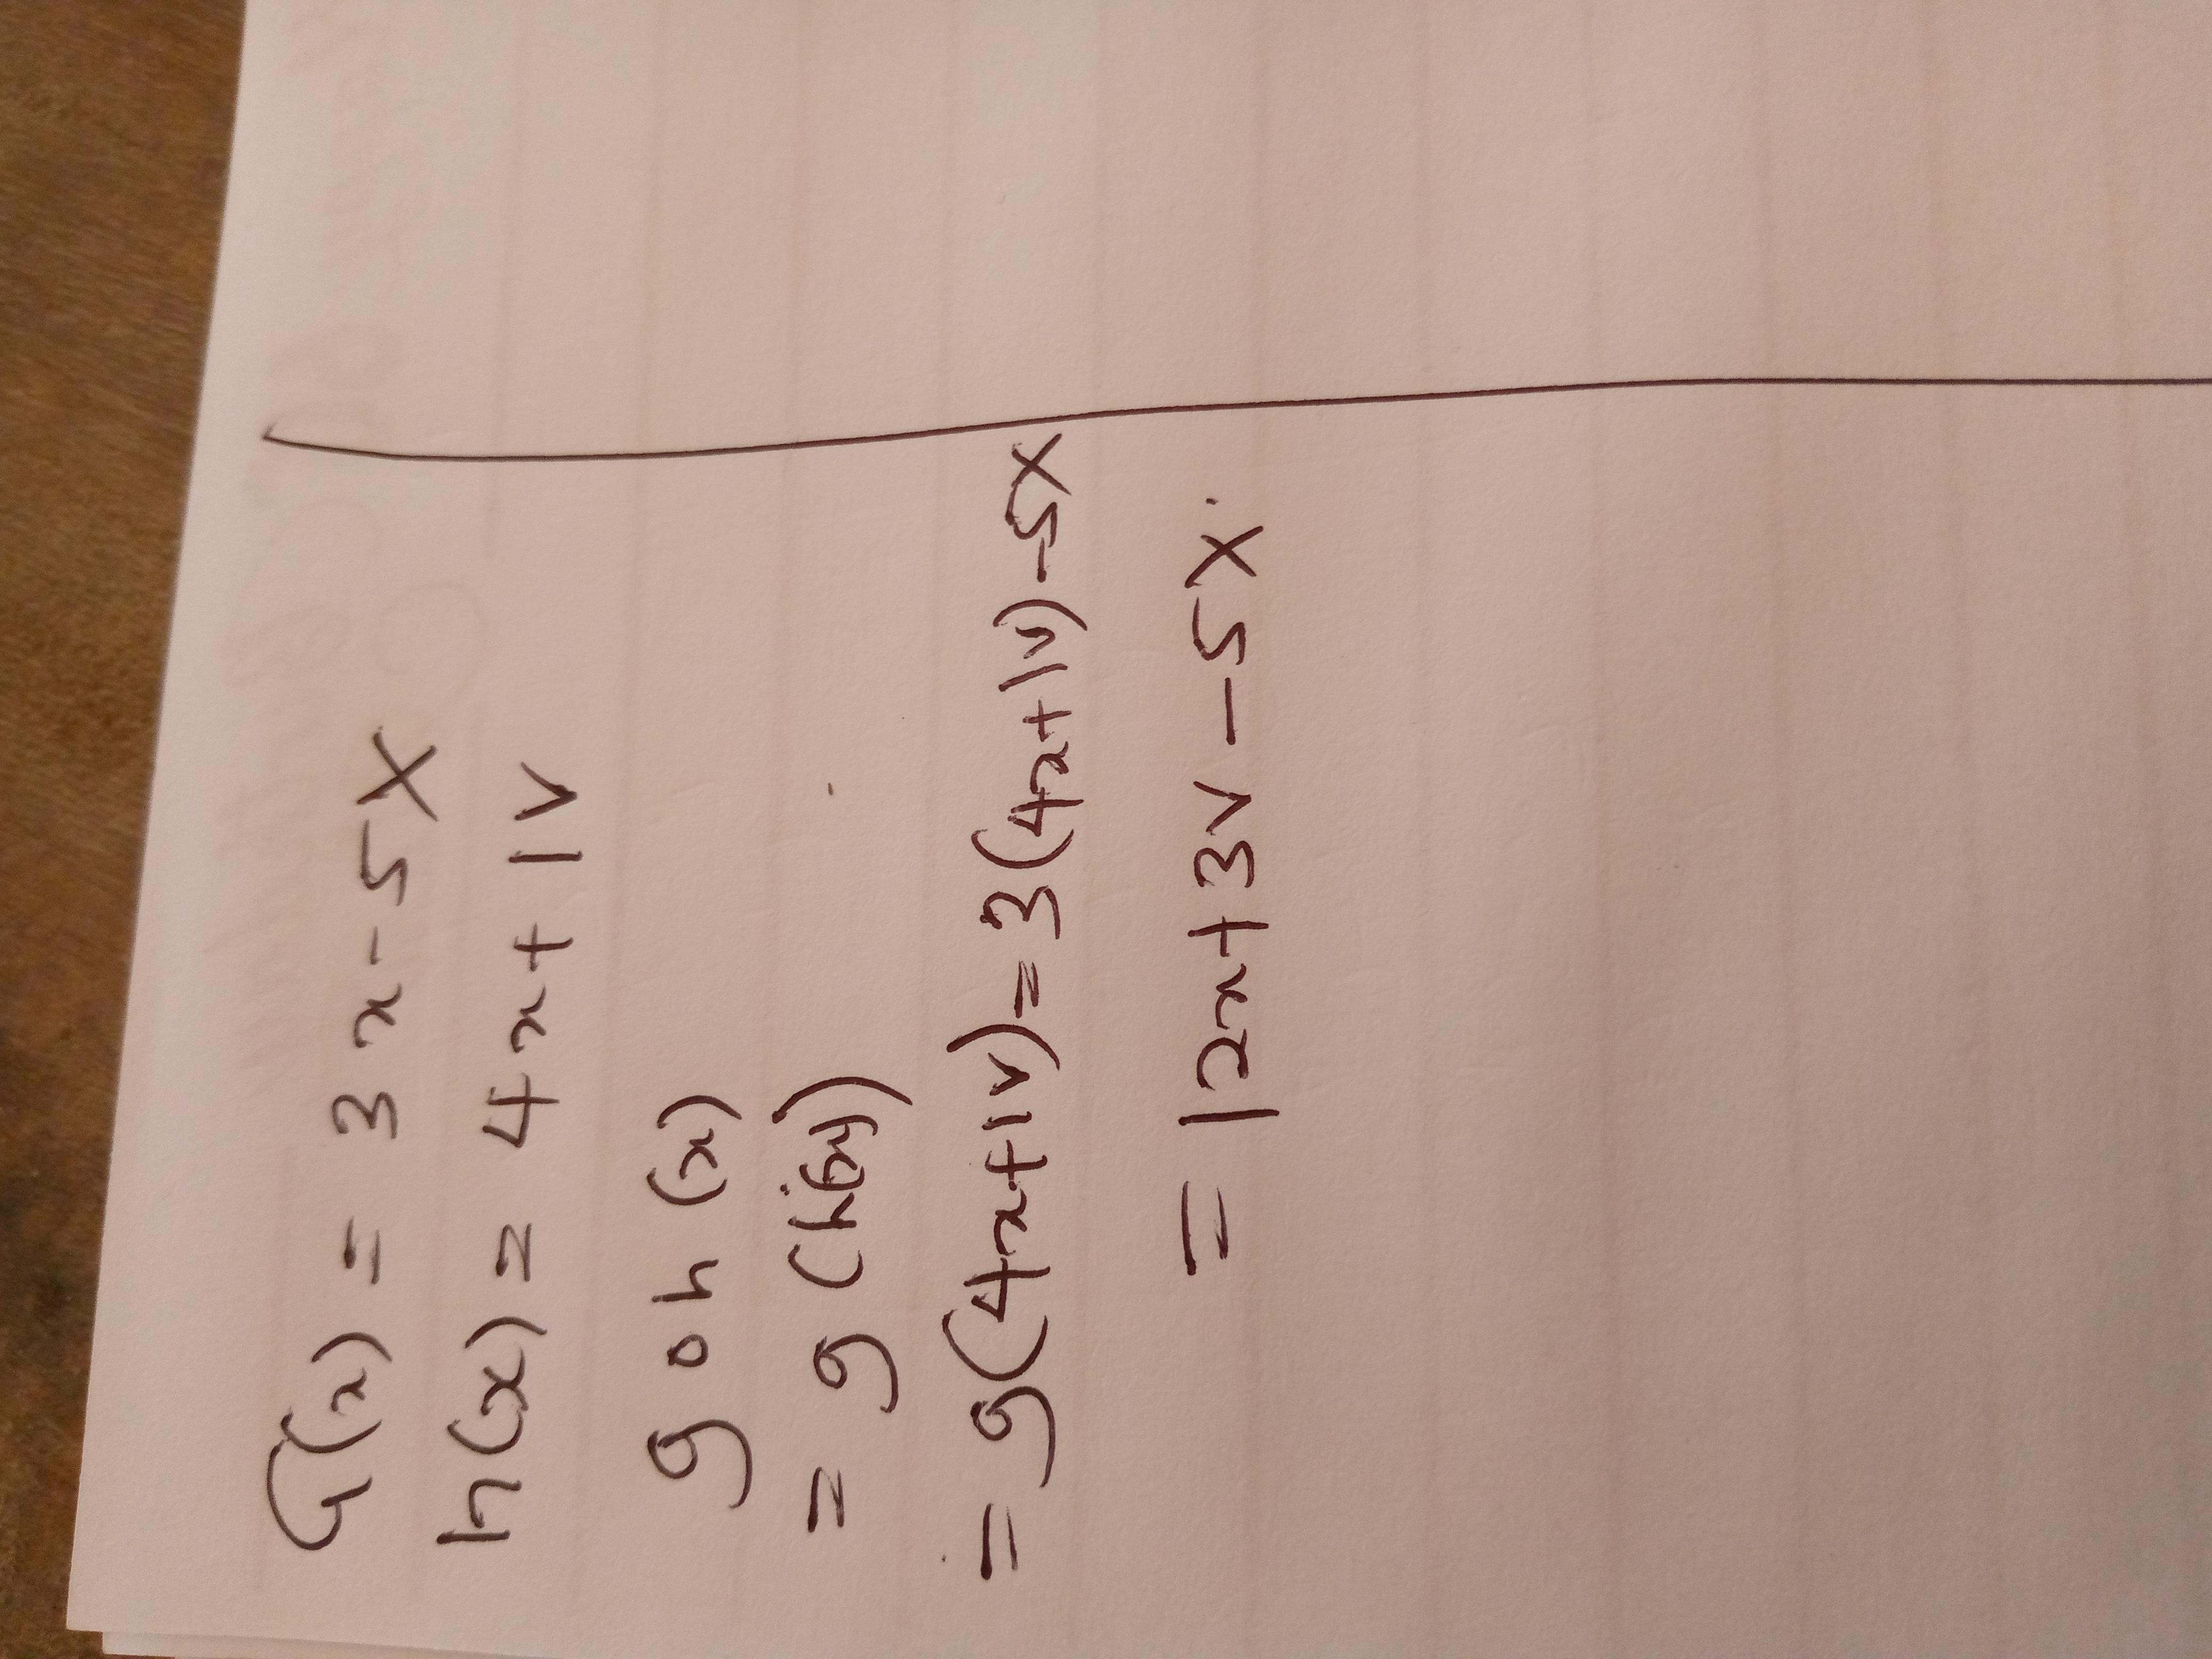 G(x) = 3x - 5X
h(x) = 4x + 1V
g o h (x)
= g (h(x))
= g(4x+1V) = 3(4x+1V) - 5X
= 12x+3V - 5X.